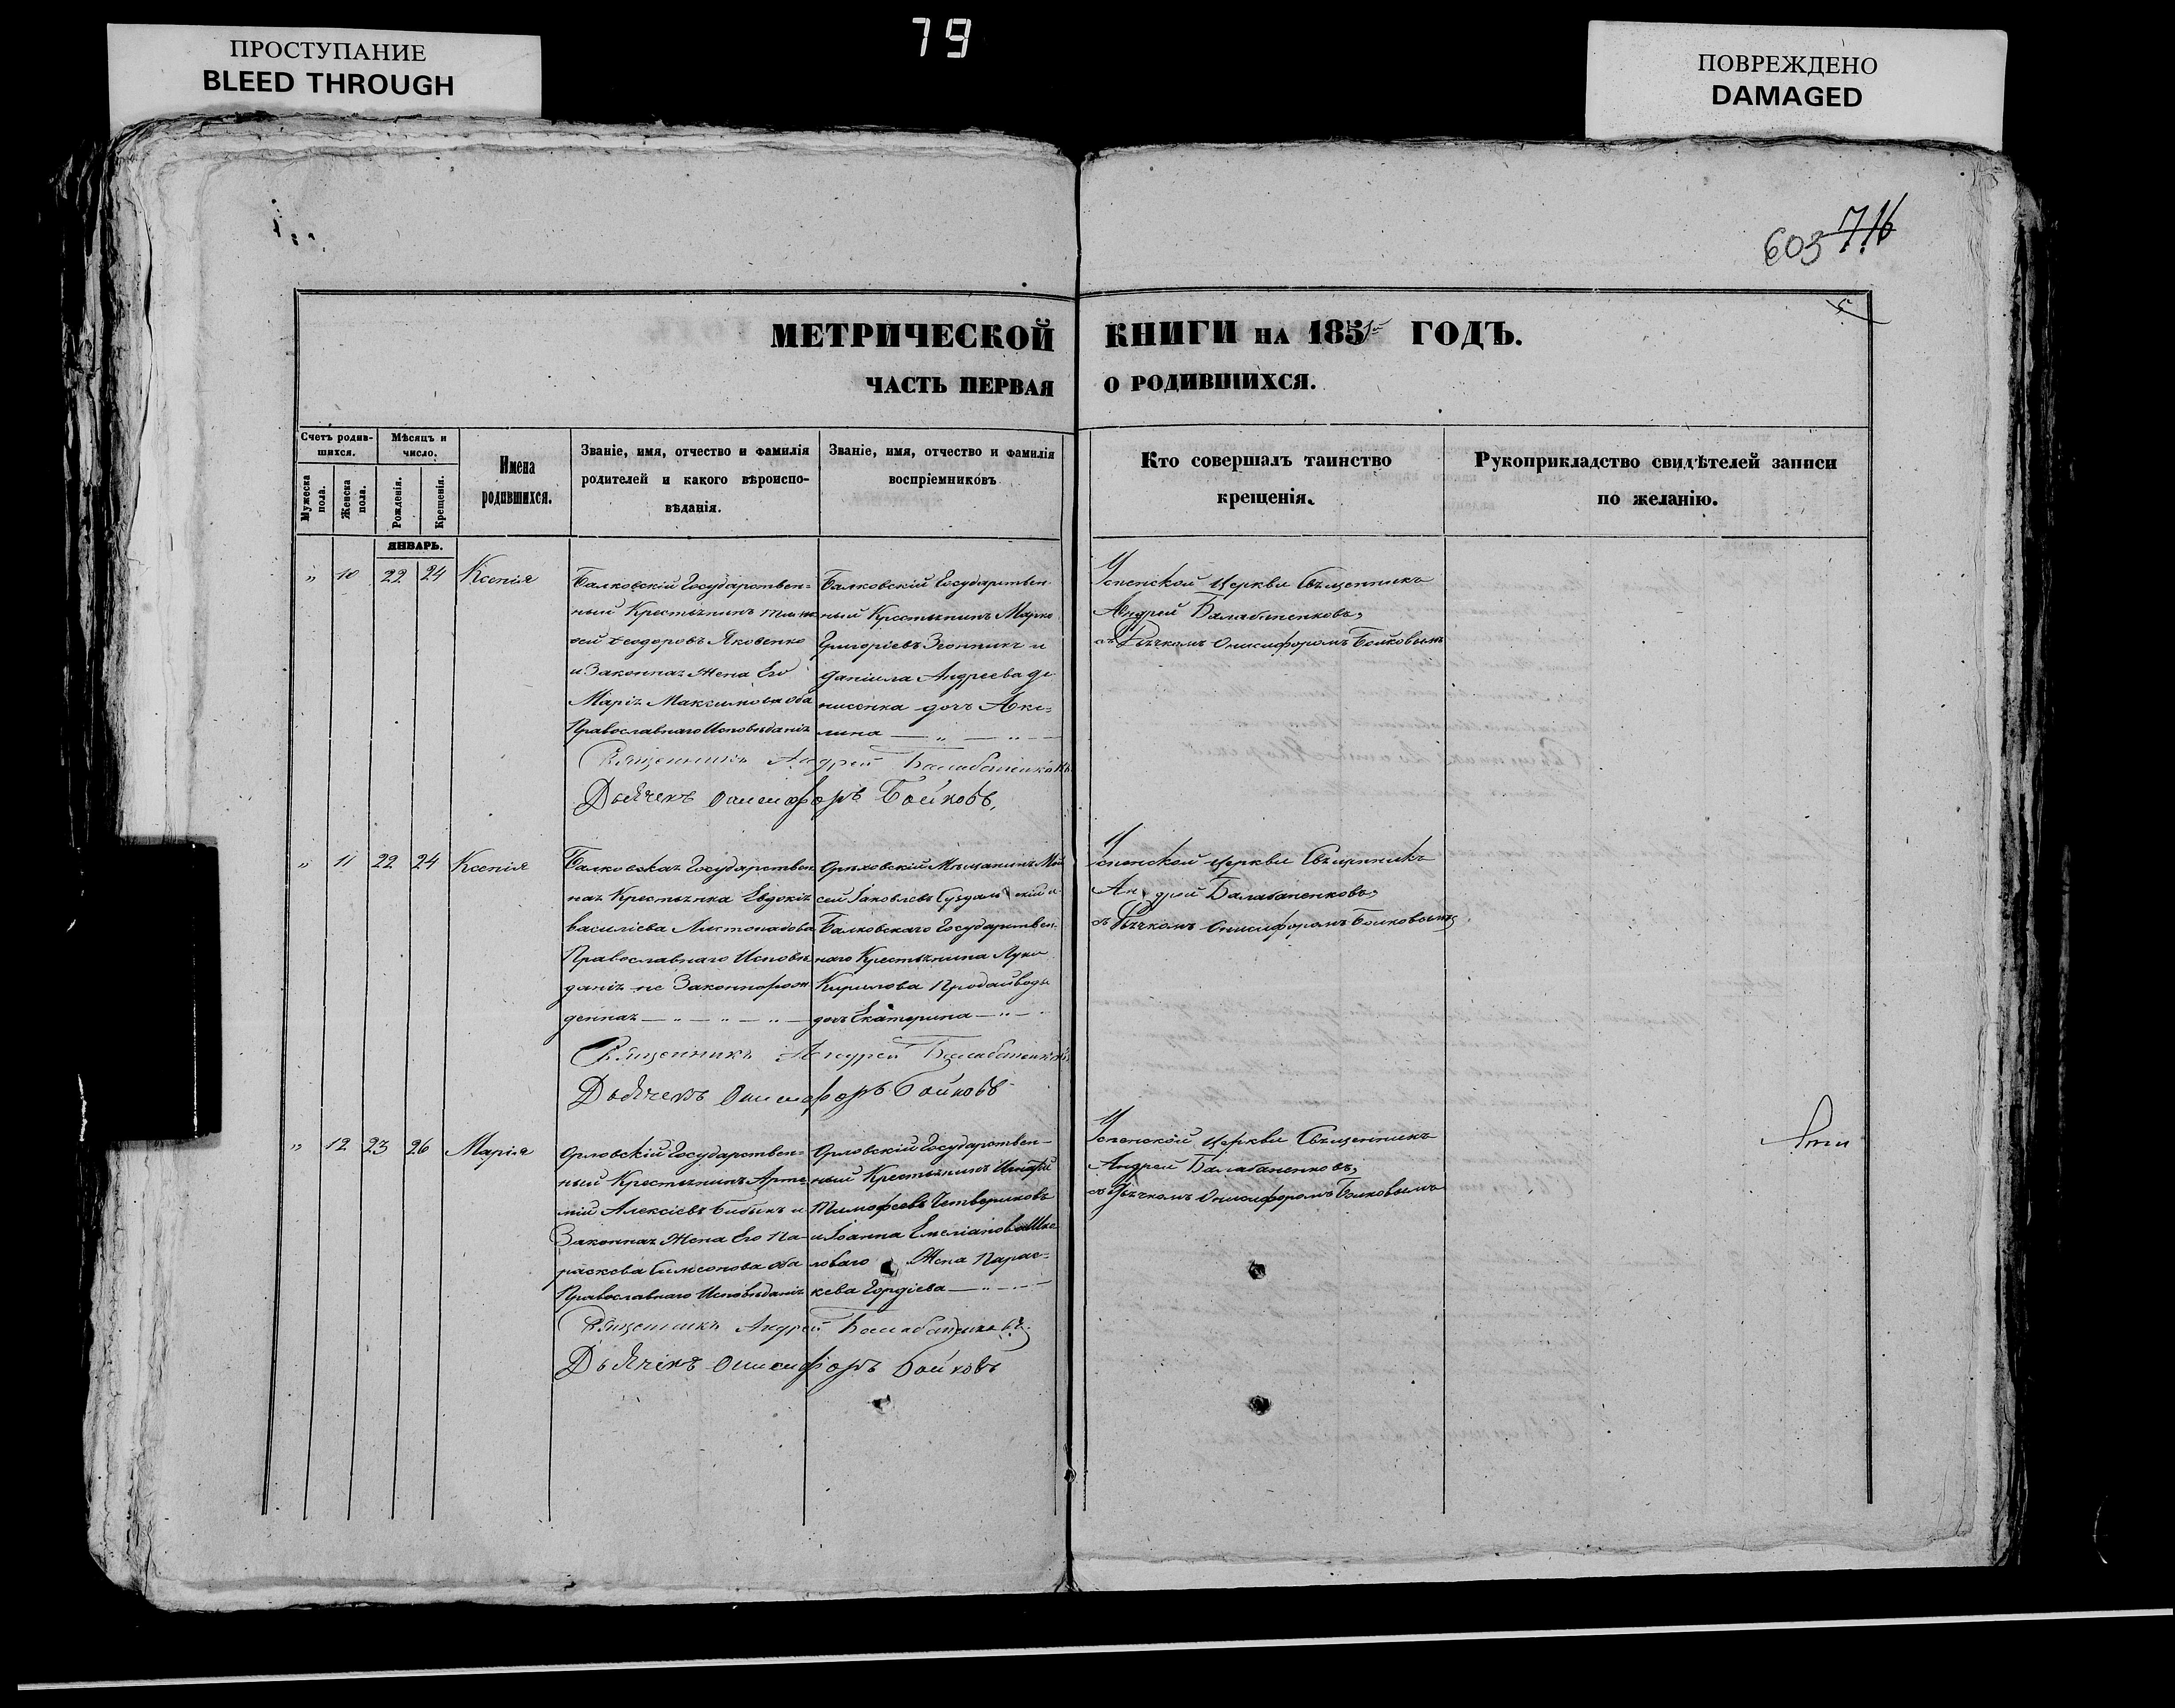 79
ПРОСТУПАНИЕ
BLEED THROUGH
ПОВРЕЖДЕНО
DAMAGED
603 716
МЕТРИЧЕСКОЙ КНИГИ НА 1851 ГОДЪ.
ЧАСТЬ ПЕРВАЯ О РОДИВШИХСЯ.
Счетъ родив-
шихся.
Мужеска
пола.
Женска
пола.
Мѣсяцъ и
число.
Рожденія.
Крещенія.
Имена
родившихся.
Званіе, имя, отчество и фамилія
родителей и какого вѣроиспо-
вѣданія.
Званіе, имя, отчество и фамилія
воспріемниковъ
Кто совершалъ таинство
крещенія.
Рукоприкладство свидѣтелей записи
по желанію.
ЯНВАРЬ.
„ 10 22 24 Ксенія
Балковскій Государствен=
ный Крестьянинъ
Феодоровъ Яковенко
и Законная Жена Его
Марія Максимова оба
Православнаго Исповѣданія
Балковскій Государствен
ный Крестьянинъ Марко
Григоріевъ и
Даніила Андреева де
нисенка дочь Аки=
лина — „ — „ —
Успенской Церкви Священникъ
Андрей Балабаненковъ,
съ Дьячкомъ Онисифоромъ Бойковымъ
Священникъ Андрей Балабаненковъ
Дьячекъ Онисифоръ Бойковъ,
„ 11 22 24 Ксенія
Балковская Государствен
ная Крестьянка Евдокія
Василіева Листопадова
Православнаго Исповѣ
данія не Законнорож
денная — „ — „ —
Орѣховскій Мѣщанинъ Мой
сей Іаковлевъ Суздальскій и
Балковскаго Государствен-
наго Крестьянина Луки
Кирилова Продайводы
дочь Екатерина — „ —
Успенской Церкви Священникъ
Андрей Балабаненковъ,
съ Дьячкомъ Онисифоромъ Бойковымъ,
Священникъ Андрей Балабаненковъ
Дьячекъ Онисифоръ Бойковъ
„ 12 23 26 Марія
Орловскій Государствен=
ный Крестьянинъ Арте-
мій Алексіевъ Бибикъ и
Законная Жена Его Па-
раскева Симеонова оба
Православнаго Исповѣданія
Орловскій Государствен-
ный Крестьянинъ Игнатій
Тимофеевъ Четвериковъ
и Іоанна Емеліанова
Жена Парас=
кева Гордіева — „ —
Успенской Церкви Священникъ
Андрей Балабаненковъ,
съ Дьячкомъ Онисифоромъ Бойковымъ
Священникъ Андрей Балабаненковъ
Дьячекъ Онисифоръ Бойковъ